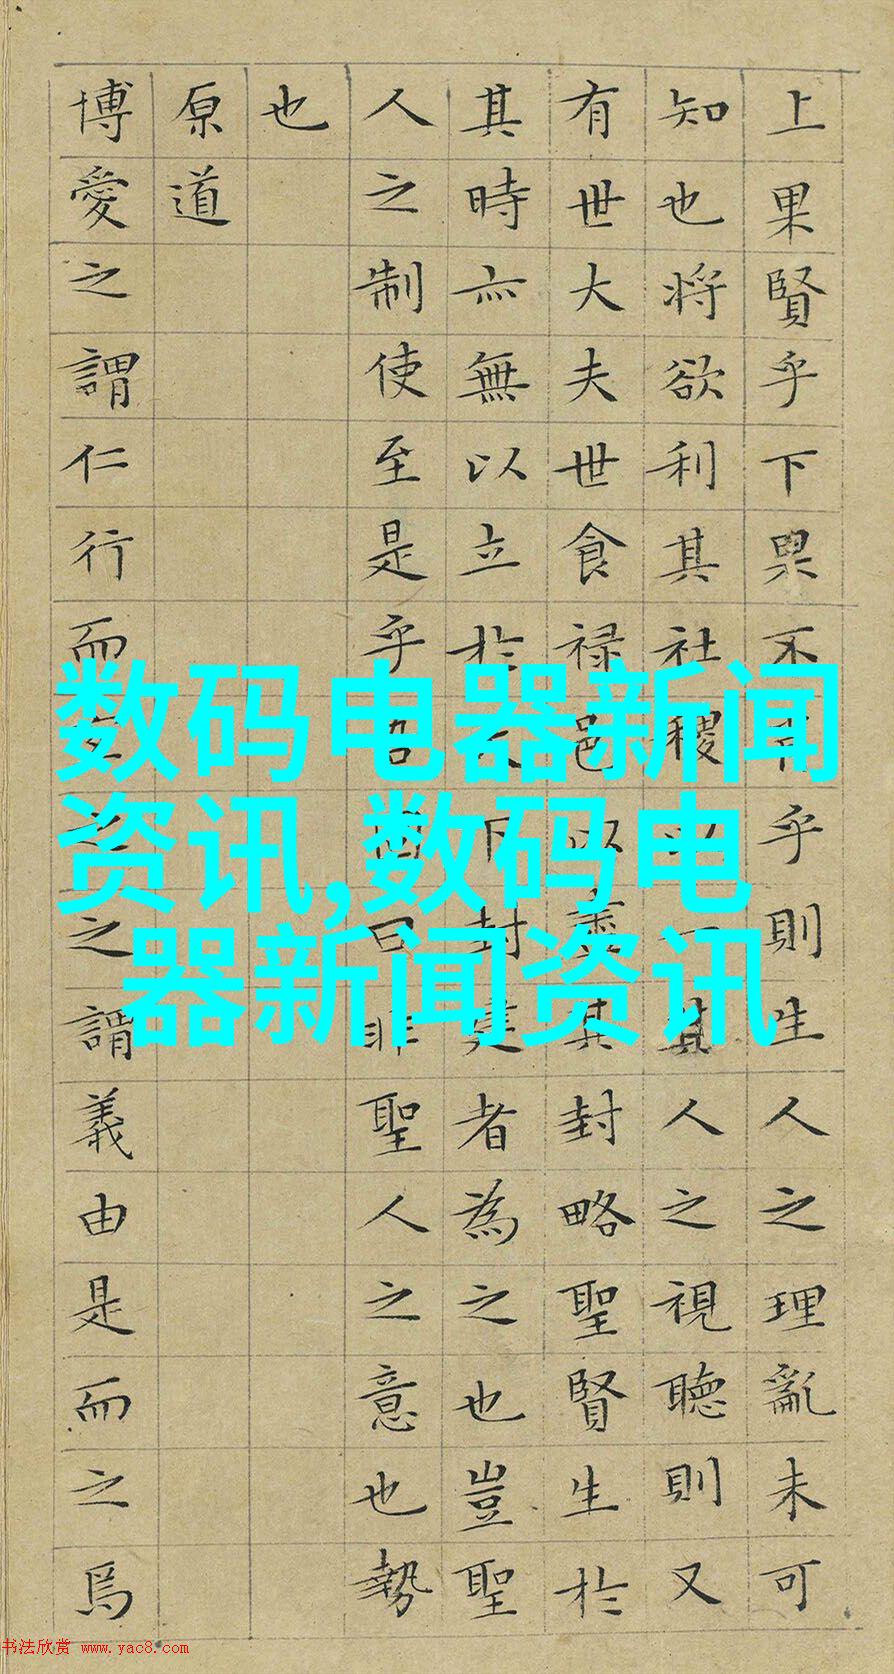 上果賢乎下果不肖乎則生人之理亂未可
知也将欲利其社稷以一其人之視聽則又
有世大夫世食禄邑以盡其封略聖賢生於
其時亦無以立於天下封建者為之也豈聖
人之制使至是乎吾固曰非聖人之意也勢
也
原道
博愛之謂仁行而宜之之謂義由是而之焉
数码电器新闻
资讯,数码电
器新闻资讯
书法欣赏 www.yac8.com